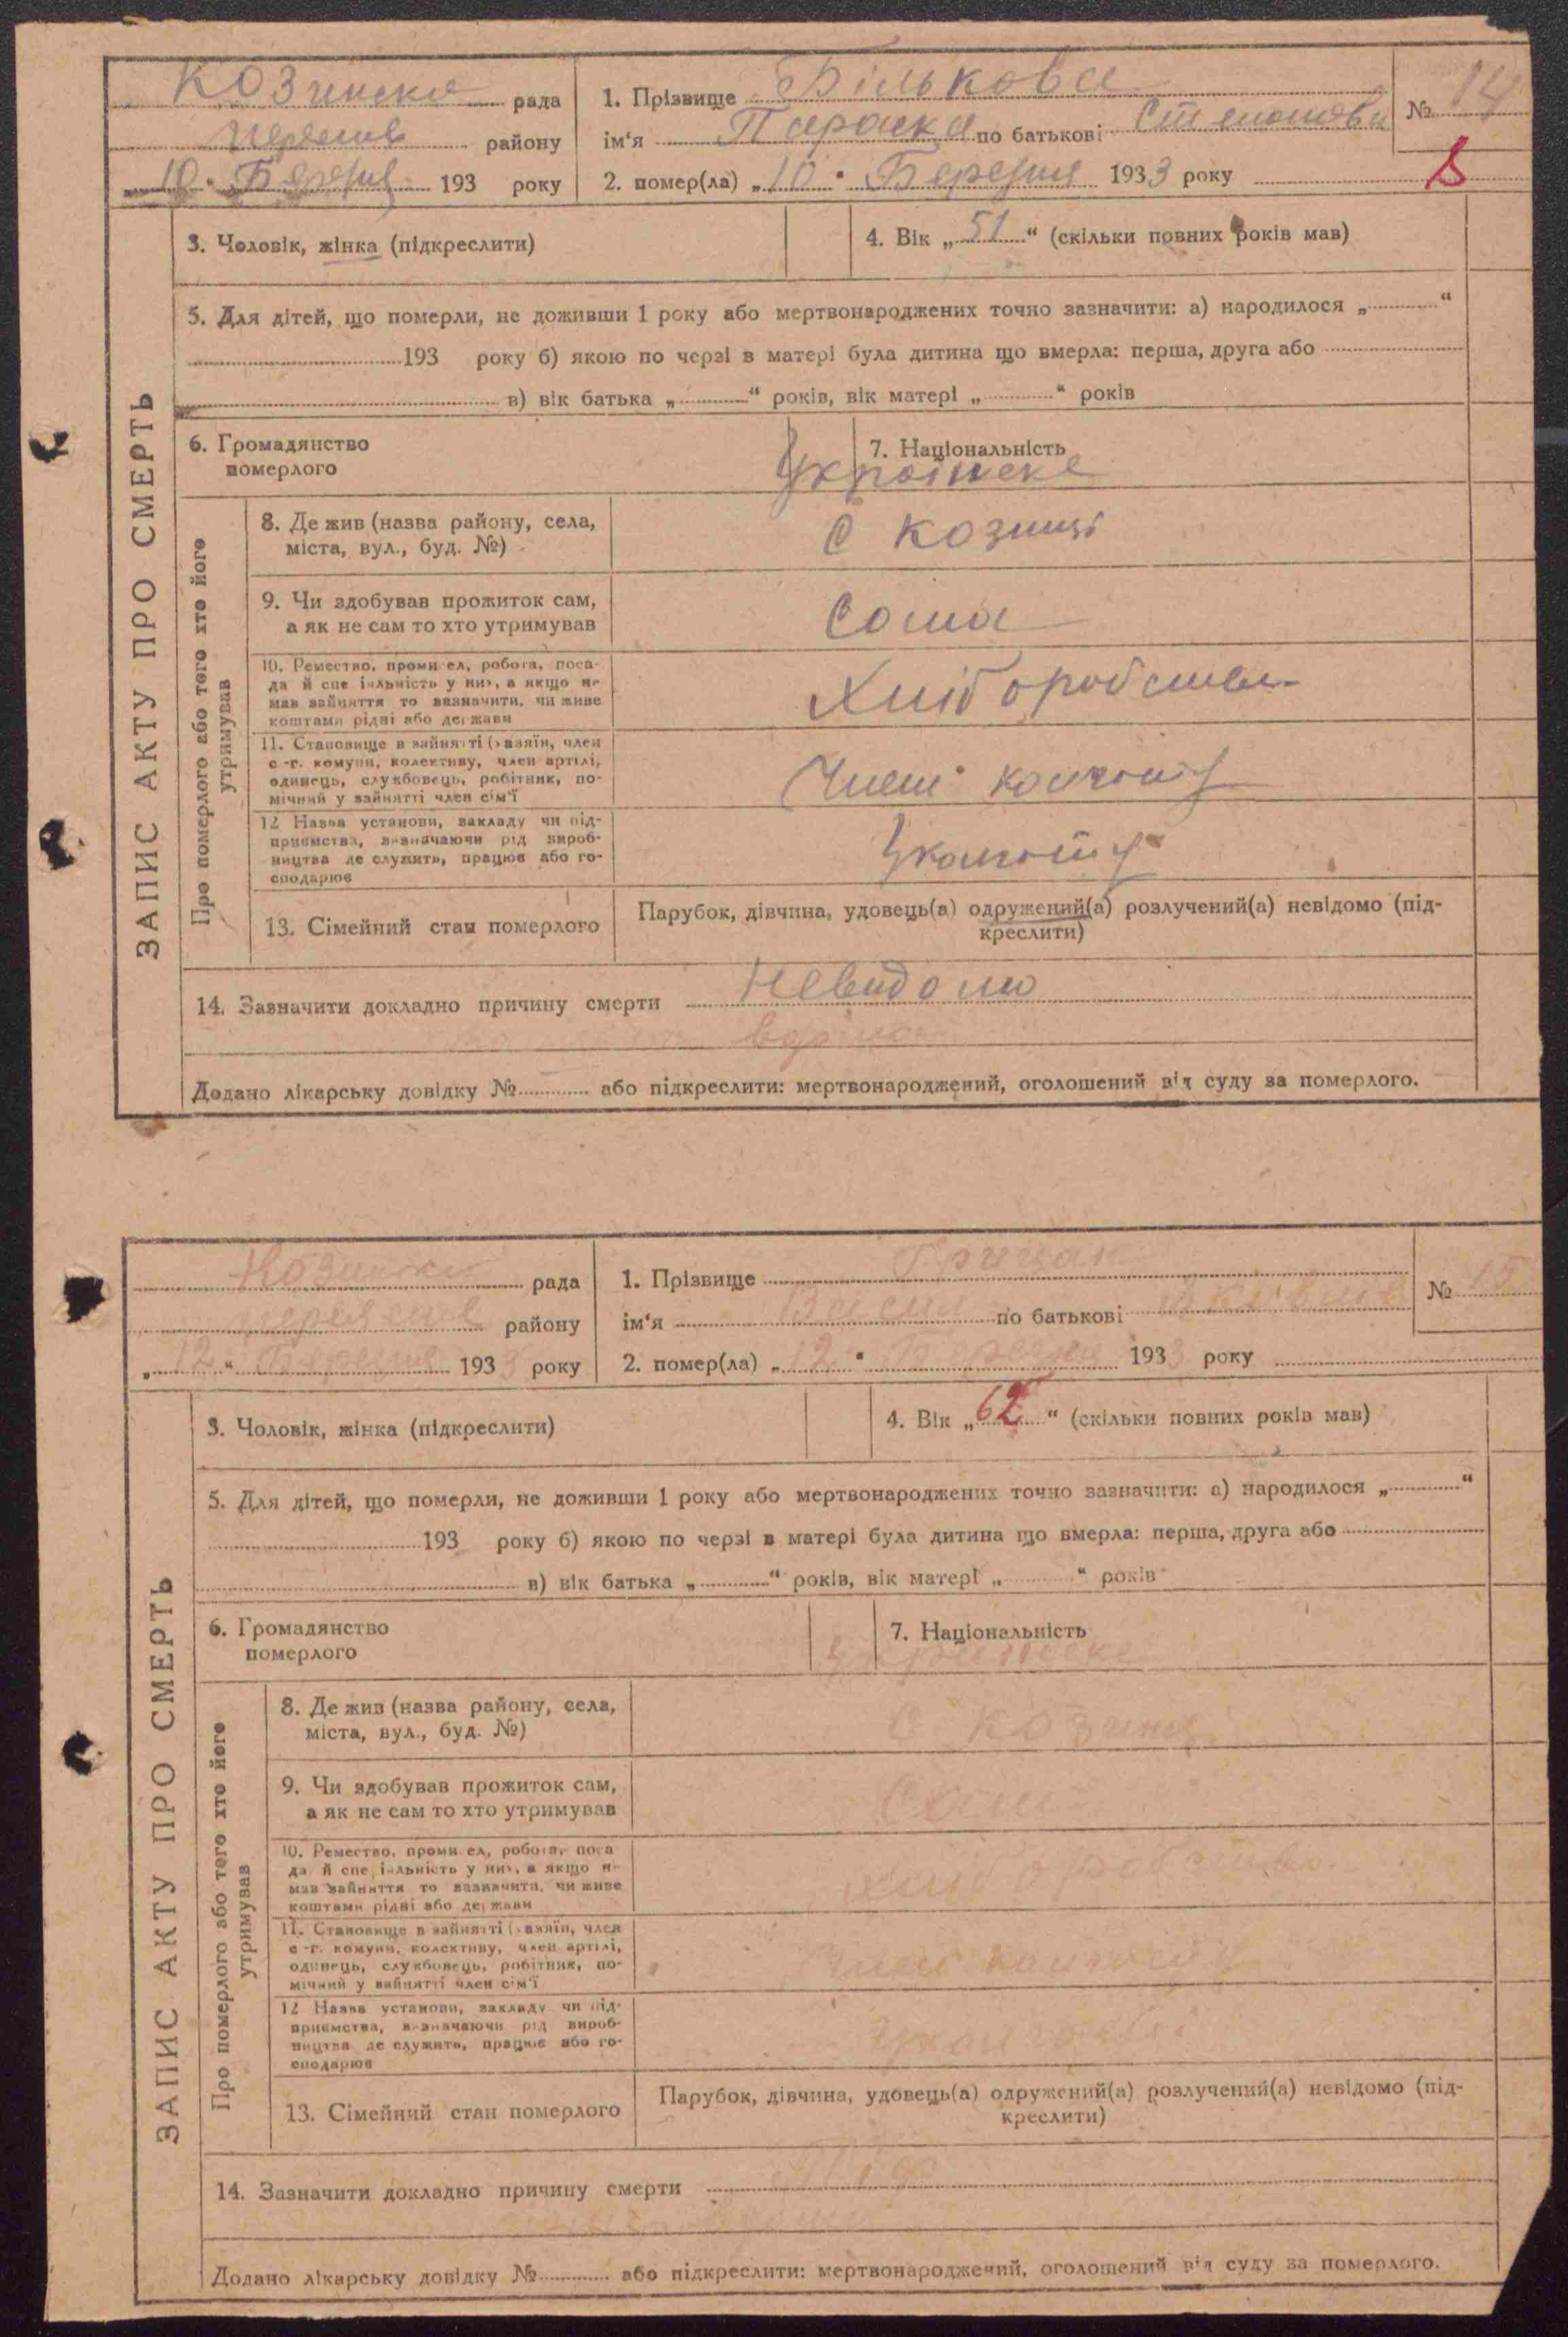 Козинска рада
району
„10“ Березня 193 року
1. Прізвище Бількова
ім'я Параска по батькові Степанова
2. помер(ла) „10“ Березня 1933 року
№ 14
3. Чоловік, жінка (підкреслити)
4. Вік „51“ (скільки повних років мав)
5. Для дітей, що померли, не доживши 1 року або мертвонароджених точно зазначити: а) народилося „ “
193 року б) якою по черзі в матері була дитина що вмерла: перша, друга або
в) вік батька „ “ років, вік матері „ “ років
6. Громадянство
померлого
7. Національність
Українське
ЗАПИС АКТУ ПРО СМЕРТЬ
Про померлого або того хто його
утримував
8. Де жив (назва району, села,
міста, вул., буд. №)
с Козинці
9. Чи здобував прожиток сам,
а як не сам то хто утримував
Сама
10. Ремество, промисел, робота, поса-
да й спеціяльність у них, а якщо не
мав зайняття то зазначити, чи живе
коштами рідні або держави
Хліборобство
11. Становище в зайнятті (хазяїн, член
с.-г. комуни, колективу, член артілі,
одинець, службовець, робітник, по-
мічний у зайнятті член сім'ї
Член колгоспу
12 Назва установи, закладу чи під-
приємства, визначаючи рід вироб-
ництва де служить, працює або го-
сподарює
У колгоспу
13. Сімейний стан померлого
Парубок, дівчина, удовець(а) одружений(а) розлучений(а) невідомо (під-
креслити)
14. Зазначити докладно причину смерти Невидомо
Додано лікарську довідку № або підкреслити: мертвонароджений, оголошений від суду за померлого.
Козинска рада
району
„12“ Березня 1933 року
1. Прізвище Грицан
ім'я Васил по батькові
2. помер(ла) „12“ Березня 1933 року
№ 15
3. Чоловік, жінка (підкреслити)
4. Вік „62“ (скільки повних років мав)
5. Для дітей, що померли, не доживши 1 року або мертвонароджених точно зазначити: а) народилося „ “
193 року б) якою по черзі в матері була дитина що вмерла: перша, друга або
в) вік батька „ “ років, вік матері „ “ років
6. Громадянство
померлого
7. Національність
Українське
ЗАПИС АКТУ ПРО СМЕРТЬ
Про померлого або того хто його
утримував
8. Де жив (назва району, села,
міста, вул., буд. №)
с Козинці
9. Чи здобував прожиток сам,
а як не сам то хто утримував
Сам
10. Ремество, промисел, робота, поса
да й спеціяльність у них, а якщо не
мав зайняття то зазначити, чи живе
коштами рідні або держави
Хліборобство
11. Становище в зайнятті (хазяїн, член
с.-г. комуни, колективу, член артілі,
одинець, службовець, робітник, по-
мічний у зайнятті член сім'ї
Член колгоспу
12 Назва установи, закладу чи під-
приємства, визначаючи рід вироб-
ництва де служить, працює або го-
сподарює
У колгоспу
13. Сімейний стан померлого
Парубок, дівчина, удовець(а) одружений(а) розлучений(а) невідомо (під-
креслити)
14. Зазначити докладно причину смерти
Додано лікарську довідку № або підкреслити: мертвонароджений, оголошений від суду за померлого.